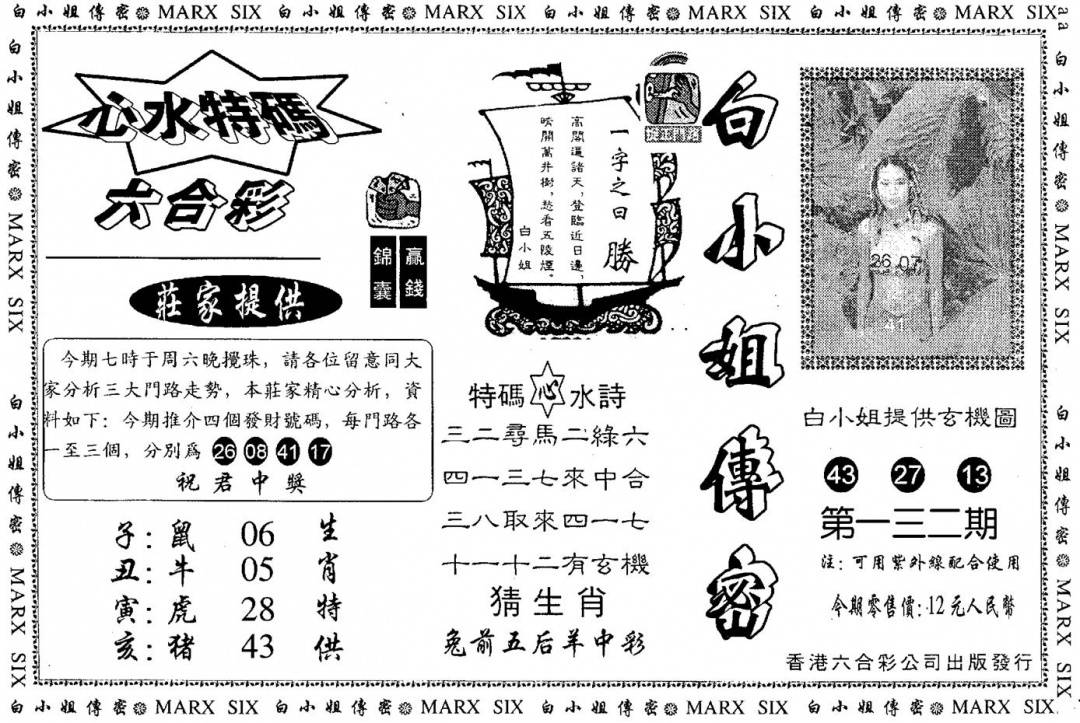 白小姐傳密 MARX SIX 白小姐傳密 MARX SIX 白小姐傳密 MARX SIX 白小姐傳密 MARX SIX
aa
白小姐傳密 MARX SIX
白小姐傳密 MARX SIX
心水特碼
六合彩
錦囊
贏錢
莊家提供
今期七時于周六晚攪珠，請各位留意同大
家分析三大門路走勢，本莊家精心分析，資
料如下：今期推介四個發財號碼，每門路各
一至三個，分別爲 26 08 41 17
祝君中獎
子：鼠 06
丑：牛 05
寅：虎 28
亥：猪 43
生肖特供
一字之曰 勝
高閣逼諸天，登臨近日邊，
晴開萬井樹，愁看五陵煙。
白小姐
特碼心水詩
三二尋馬二綠六
四一三七來中合
三八取來四一七
十一十二有玄機
猜生肖
兔前五后羊中彩
白小姐傳密
26 07
41
白小姐提供玄機圖
43 27 13
第一三二期
注：可用紫外線配合使用
今期零售價：12元人民幣
香港六合彩公司出版發行
白小姐傳密 MARX SIX
白小姐傳密 MARX SIX
白小姐傳密 MARX SIX 白小姐傳密 MARX SIX 白小姐傳密 MARX SIX 白小姐傳密 MARX SIX